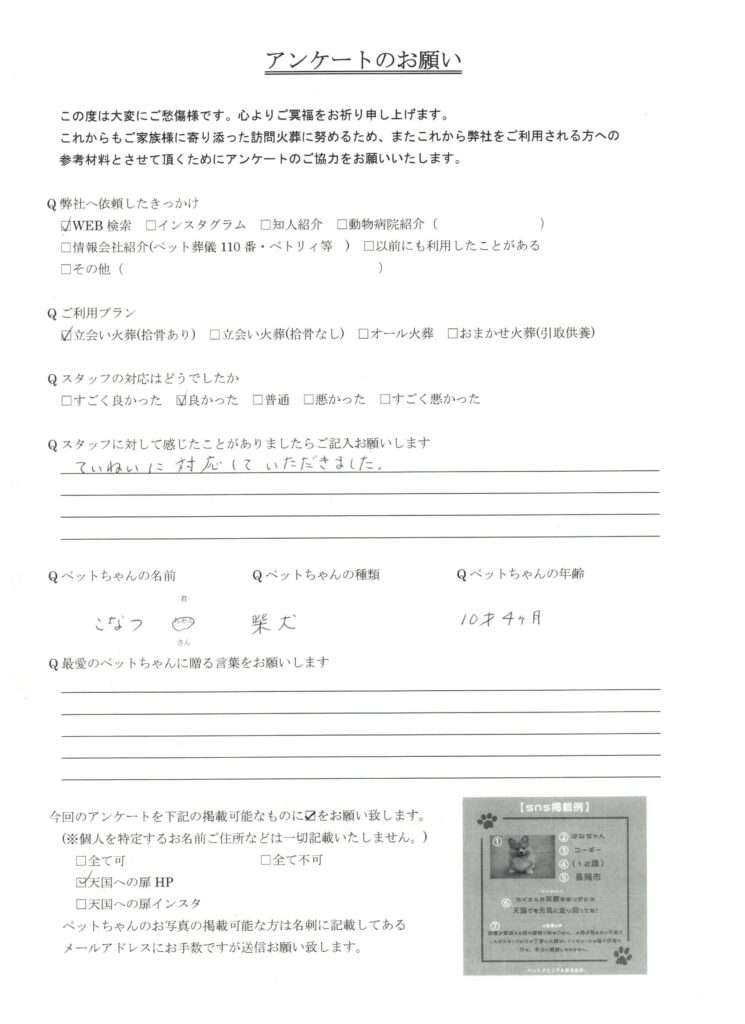 アンケートのお願い
この度は大変にご愁傷様です。心よりご冥福をお祈り申し上げます。
これからもご家族様に寄り添った訪問火葬に努めるため、またこれから弊社をご利用される方への
参考材料とさせて頂くためにアンケートのご協力をお願いいたします。
Q 弊社へ依頼したきっかけ
☑WEB 検索 □インスタグラム □知人紹介 □動物病院紹介（ ）
□情報会社紹介(ペット葬儀 110 番・ペトリィ等 ) □以前にも利用したことがある
□その他（ ）
Q ご利用プラン
☑立会い火葬(拾骨あり) □立会い火葬(拾骨なし) □オール火葬 □おまかせ火葬(引取供養)
Q スタッフの対応はどうでしたか
□すごく良かった ☑良かった □普通 □悪かった □すごく悪かった
Q スタッフに対して感じたことがありましたらご記入お願いします
ていねいに対応していただきました。
Q ペットちゃんの名前 Q ペットちゃんの種類 Q ペットちゃんの年齢
君
こなつ ちゃん 柴犬 10才4ヶ月
さん
Q 最愛のペットちゃんに贈る言葉をお願いします
今回のアンケートを下記の掲載可能なものに☑をお願い致します。
(※個人を特定するお名前ご住所などは一切記載いたしません。)
□全て可 □全て不可
☑天国への扉 HP
□天国への扉インスタ
ペットちゃんのお写真の掲載可能な方は名刺に記載してある
メールアドレスにお手数ですが送信お願い致します。
【sns掲載例】
① ② はなちゃん
③ コーギー
④ (12歳)
⑤ 長岡市
⑥ たくさんの笑顔をありがとう
天国でも元気に走り回ってね!
⑦